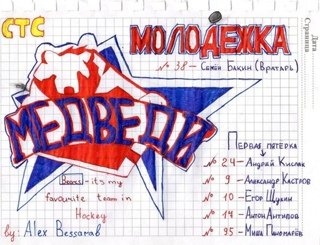 СТС
МОЛОДЁЖКА
Дата
Страница
№ 38 - Семён Бакин (Вратарь)
МЕДВЕДИ
Первая пятёрка
№ 24 - Андрей Кисляк
№ 9 - Александр Костров
№ 10 - Егор Щукин
№ 14 - Антон Антипов
№ 95 - Миша Пономарёв
Bears - it's my
favourite team in
Hockey
by: Alex Bessarab